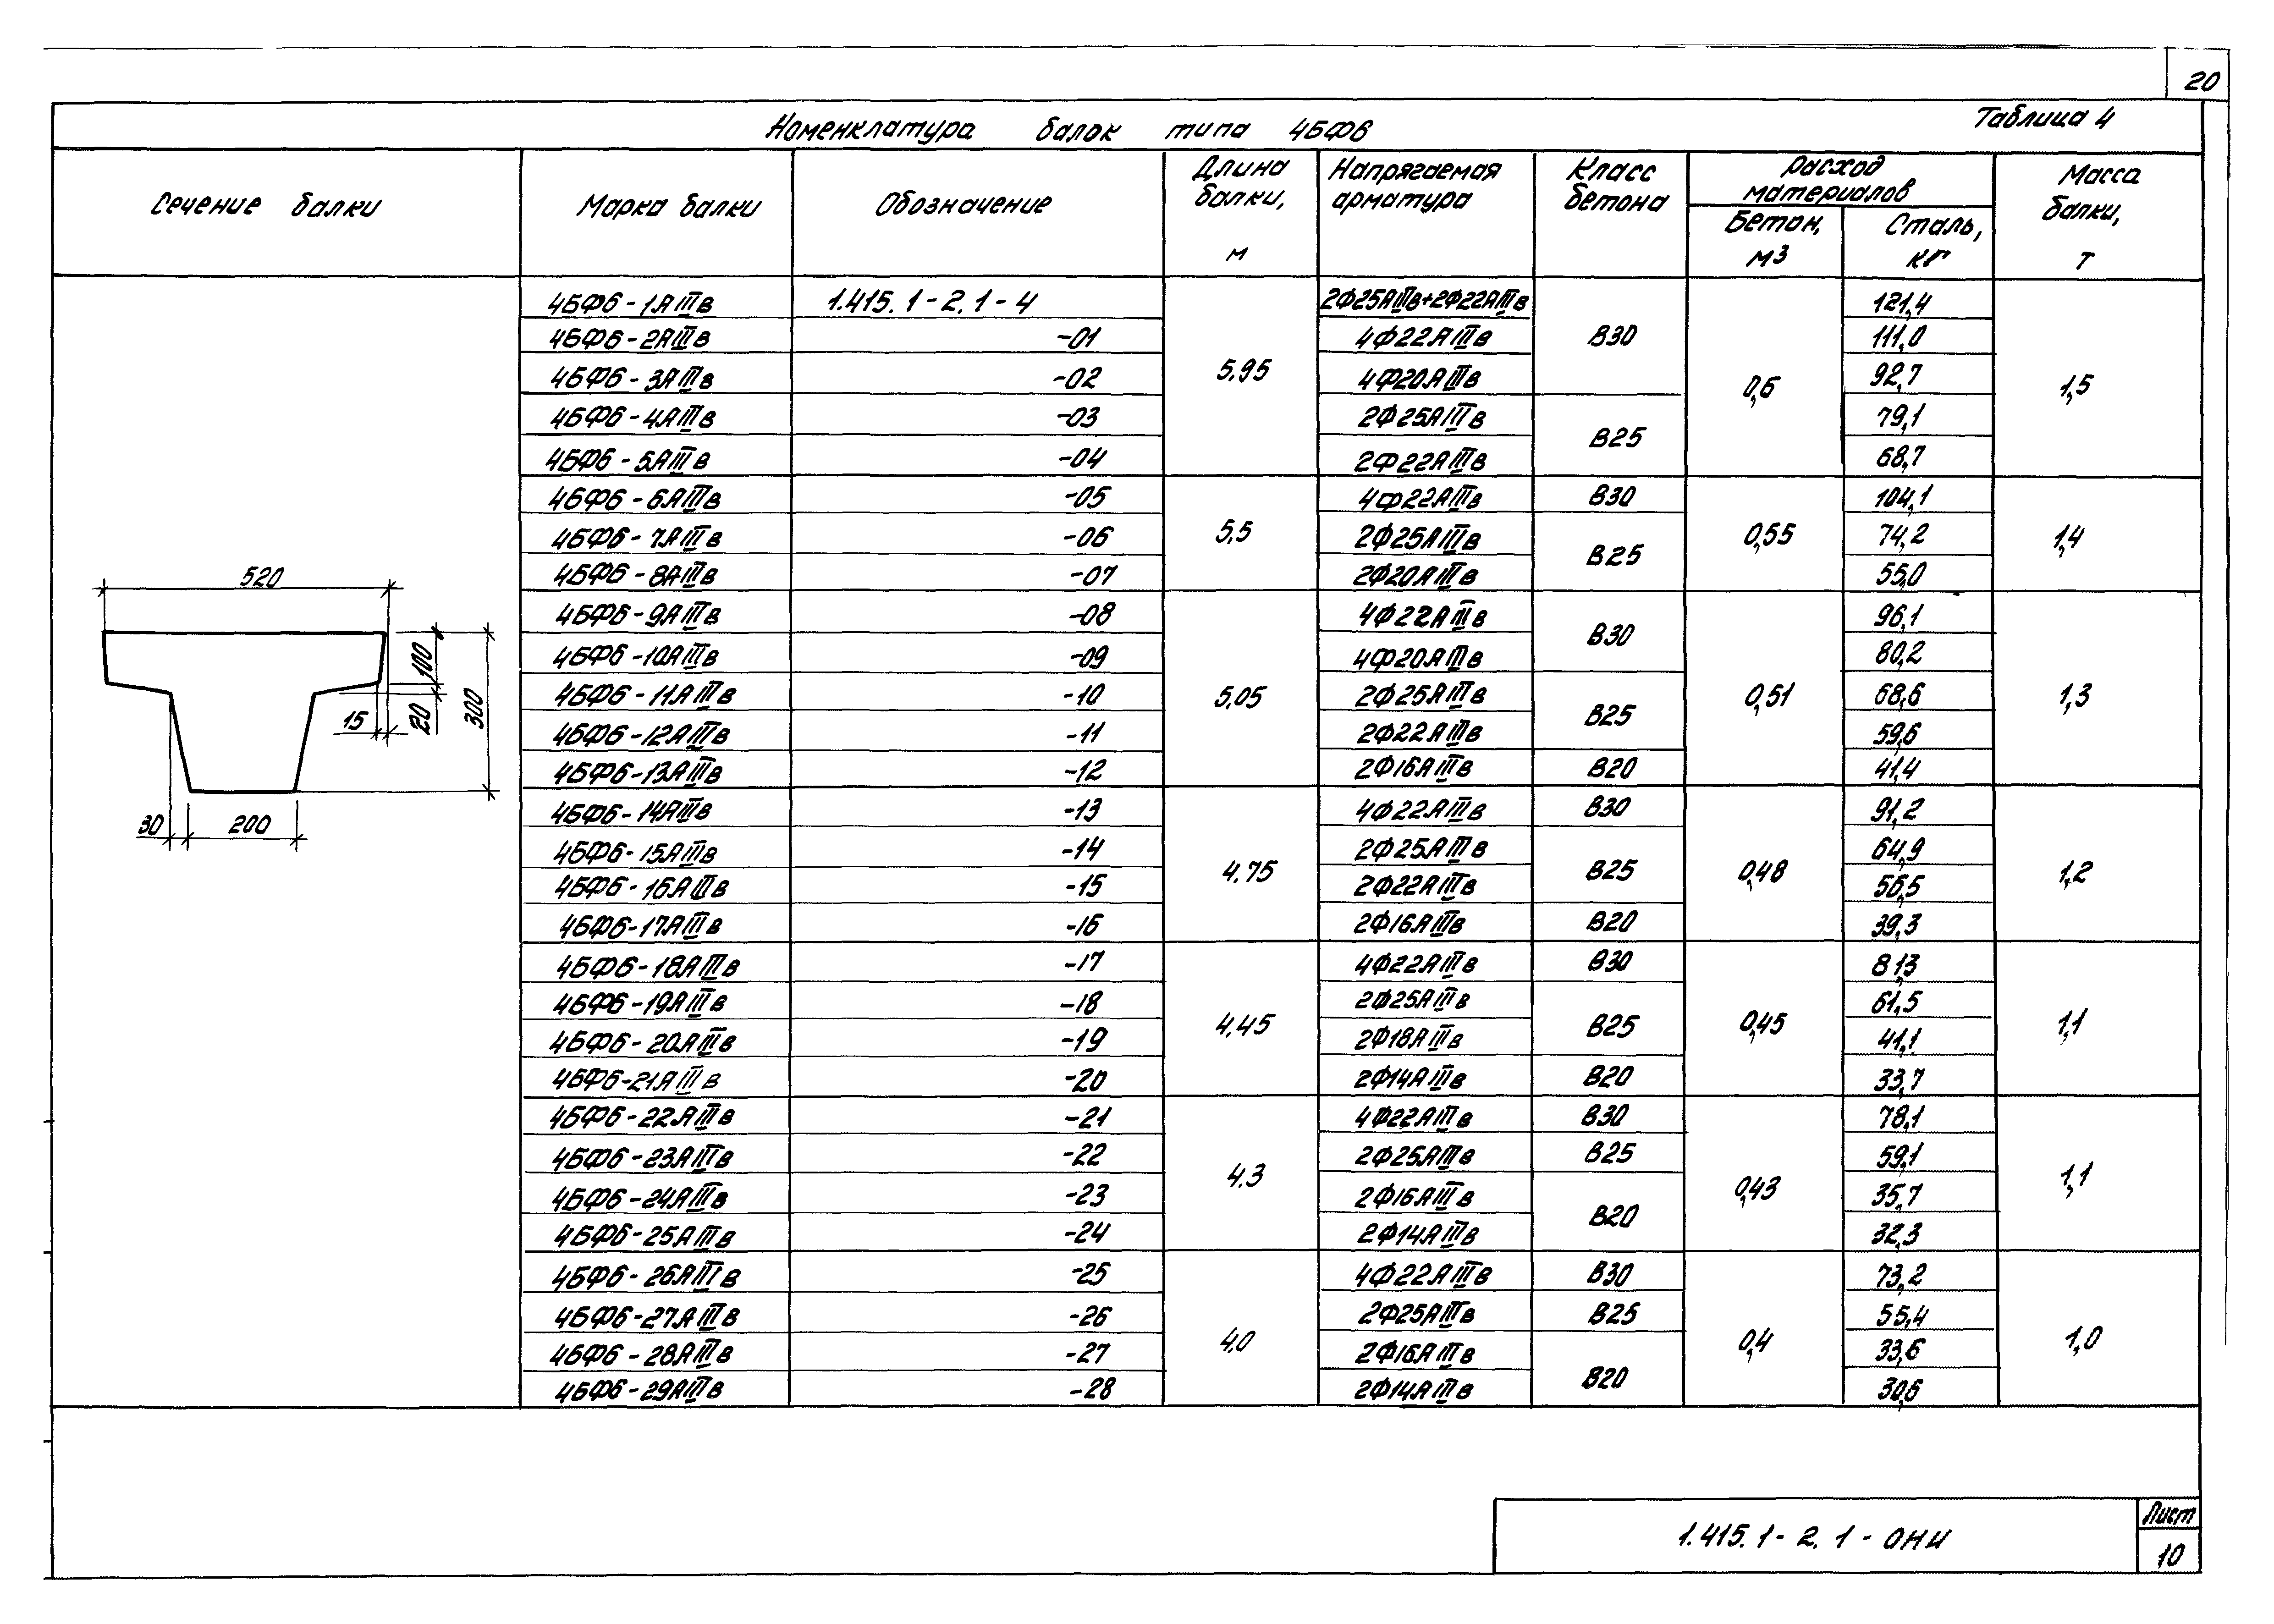 20
Таблица 4
Номенклатура балок типа 4БФ6
Сечение балки
Марка балки
Обозначение
Длина балки, м
Напрягаемая арматура
Класс бетона
Расход материалов
Бетон, м3
Сталь, кг
Масса балки, т
4БФ6-1АIIIв 1.415.1-2.1-4 5,95 2Ф25АIIIв+2Ф22АIIIв В30 0,6 121,4 1,5
4БФ6-2АIIIв -01 4Ф22АIIIв 111,0
4БФ6-3АIIIв -02 4Ф20АIIIв 92,7
4БФ6-4АIIIв -03 2Ф25АIIIв В25 79,1
4БФ6-5АIIIв -04 2Ф22АIIIв 68,7
4БФ6-6АIIIв -05 5,5 4Ф22АIIIв В30 0,55 104,1 1,4
4БФ6-7АIIIв -06 2Ф25АIIIв В25 74,2
4БФ6-8АIIIв -07 2Ф20АIIIв 55,0
4БФ6-9АIIIв -08 5,05 4Ф22АIIIв В30 0,51 96,1 1,3
4БФ6-10АIIIв -09 4Ф20АIIIв 80,2
4БФ6-11АIIIв -10 2Ф25АIIIв В25 68,6
4БФ6-12АIIIв -11 2Ф22АIIIв 59,6
4БФ6-13АIIIв -12 2Ф16АIIIв В20 41,4
4БФ6-14АIIIв -13 4.75 4Ф22АIIIв В30 0,48 91,2 1,2
4БФ6-15АIIIв -14 2Ф25АIIIв В25 64,9
4БФ6-16АIIIв -15 2Ф22АIIIв 56,5
4БФ6-17АIIIв -16 2Ф16АIIIв В20 39,3
4БФ6-18АIIIв -17 4,45 4Ф22АIIIв В30 0,45 81,3 1,1
4БФ6-19АIIIв -18 2Ф25АIIIв В25 61,5
4БФ6-20АIIIв -19 2Ф18АIIIв 41,1
4БФ6-21АIIIв -20 2Ф14АIIIв В20 33,7
4БФ6-22АIIIв -21 4.3 4Ф22АIIIв В30 0,43 78,1 1,1
4БФ6-23АIIIв -22 2Ф25АIIIв В25 59,1
4БФ6-24АIIIв -23 2Ф16АIIIв В20 35,7
4БФ6-25АIIIв -24 2Ф14АIIIв 32,3
4БФ6-26АIIIв -25 4,0 4Ф22АIIIв В30 0,4 73,2 1,0
4БФ6-27АIIIв -26 2Ф25АIIIв В25 55,4
4БФ6-28АIIIв -27 2Ф16АIIIв В20 33,6
4БФ6-29АIIIв -28 2Ф14АIIIв 30,6
520
100
20
300
15
30
200
1.415.1-2.1-ОНИ
Лист
10